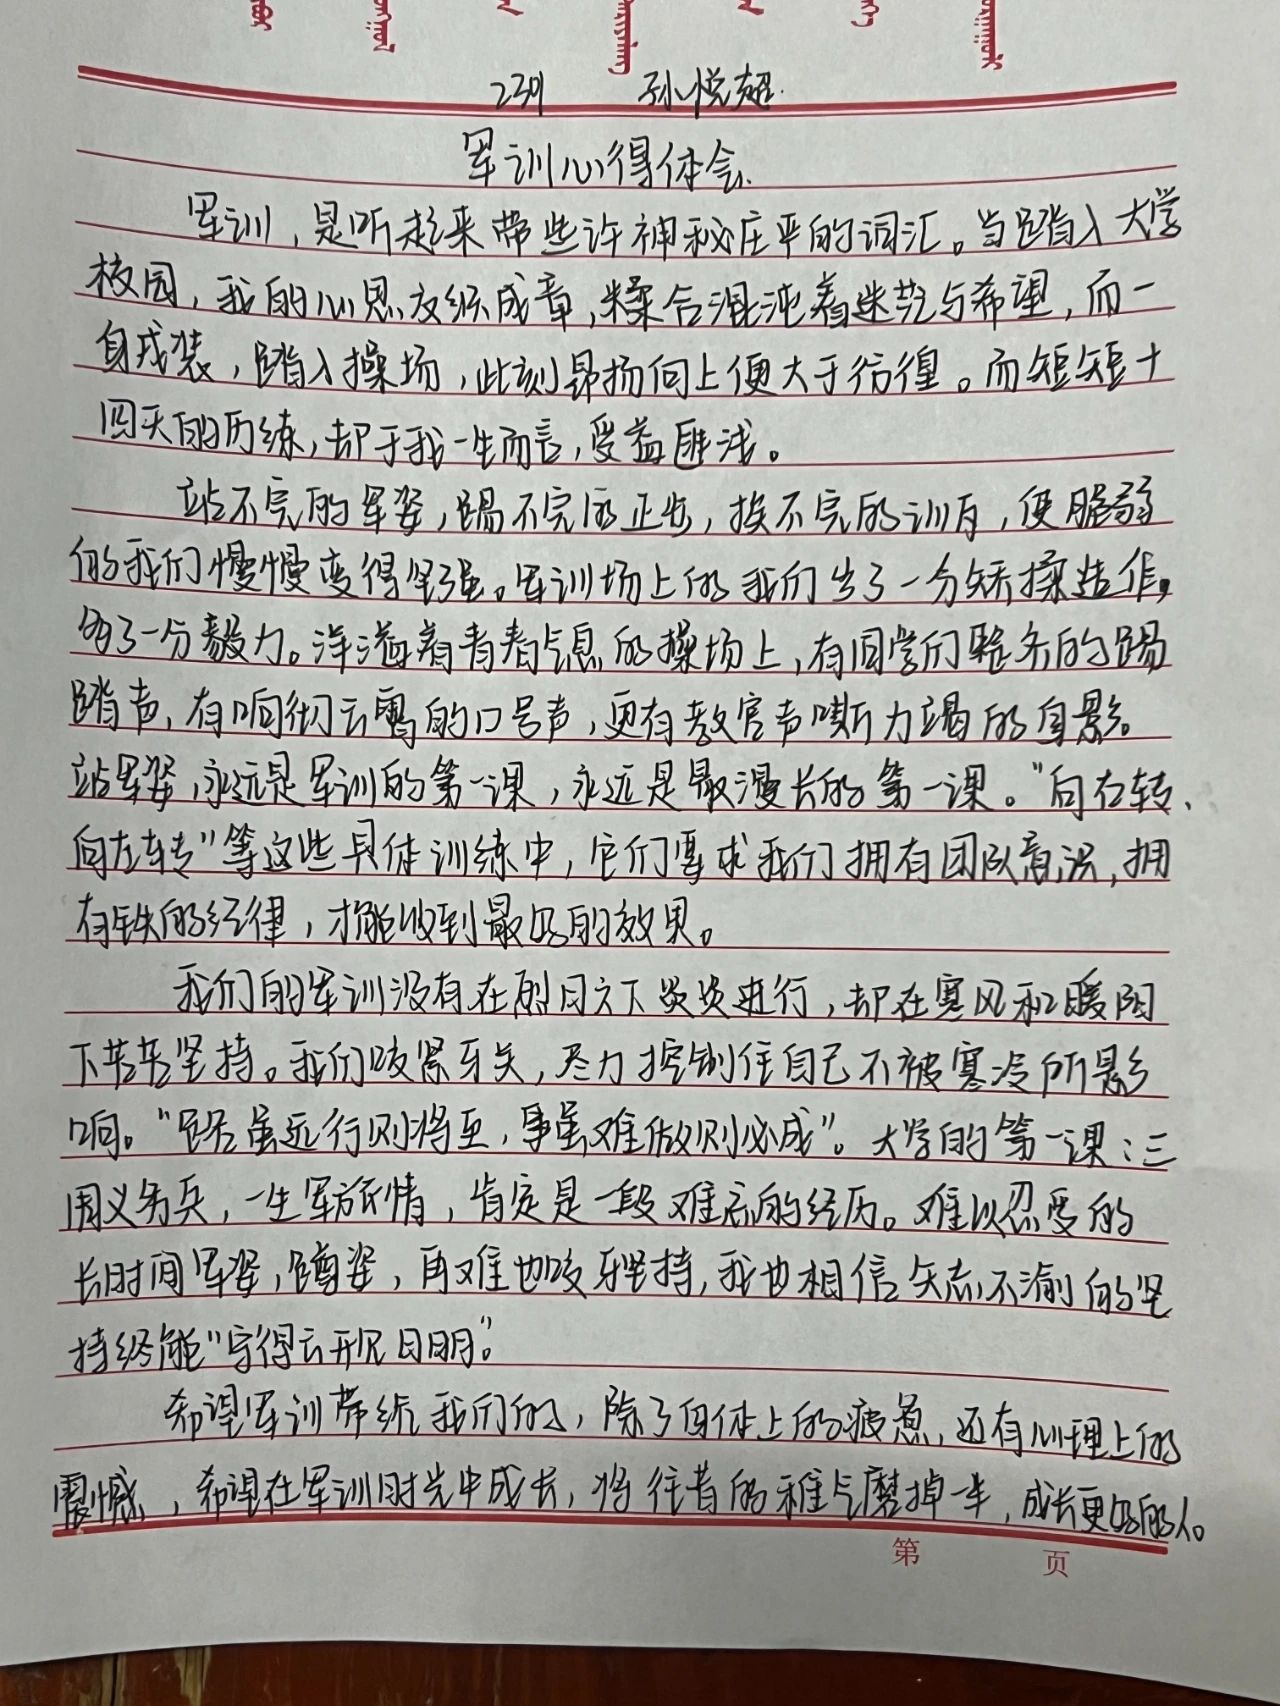 239 孙悦超
军训心得体会
军训，是听起来带些许神秘庄严的词汇。当踏入大学
校园，我的心思交织成章，糅合混沌着迷茫与希望，而一
身戎装，踏入操场，此刻昂扬向上便大于彷徨。而短短十
四天的历练，却于我一生而言，受益匪浅。
站不完的军姿，踢不完的正步，挨不完的训斥，使脆弱
的我们慢慢变得坚强。军训场上的我们少了一分矫揉造作，
多了一分毅力。洋溢着青春气息的操场上，有同学们整齐的踢
踏声，有响彻云霄的口号声，更有教官声嘶力竭的身影。
站军姿，永远是军训的第一课，永远是最漫长的第一课。“向右转、
向左转”等这些具体训练中，它们要求我们拥有团队意识，拥
有铁的纪律，才能收到最好的效果。
我们的军训没有在烈日之下炎炎进行，却在寒风和暖阳
下苦苦坚持。我们咬紧牙关，尽力控制住自己不被寒冷所影
响。“路虽远行则将至，事虽难做则必成”。大学的第一课：三
周义务兵，一生军旅情，肯定是一段难忘的经历。难以忍受的
长时间军姿，蹲姿，再难也咬牙坚持，我也相信矢志不渝的坚
持终能“守得云开见日明”。
希望军训带给我们的，除了身体上的疲惫，还有心理上的
震憾，希望在军训时光中成长，将往昔的稚气磨掉一半，成长更好的人。
第 页